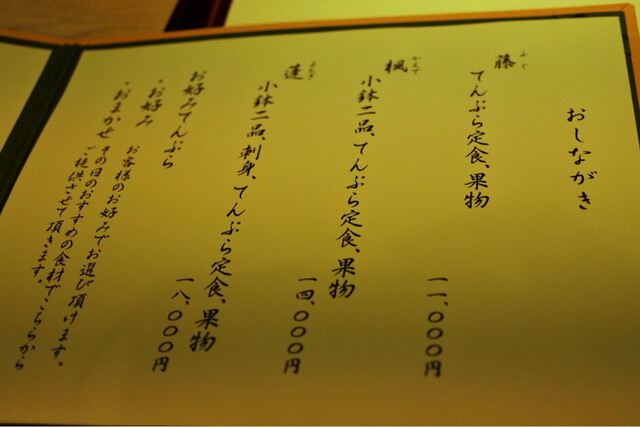 おしながき
ふじ
藤
てんぷら定食、果物
一一、〇〇〇円
かえで
楓
小鉢二品、てんぷら定食、果物
一四、〇〇〇円
よもぎ
蓬
小鉢二品、刺身、てんぷら定食、果物
一八、〇〇〇円
お好みてんぷら
・お好み　お客様のお好みでお選び頂けます。
・おまかせ　その日のおすすめの食材でこちらから
ご提供させて頂きます。